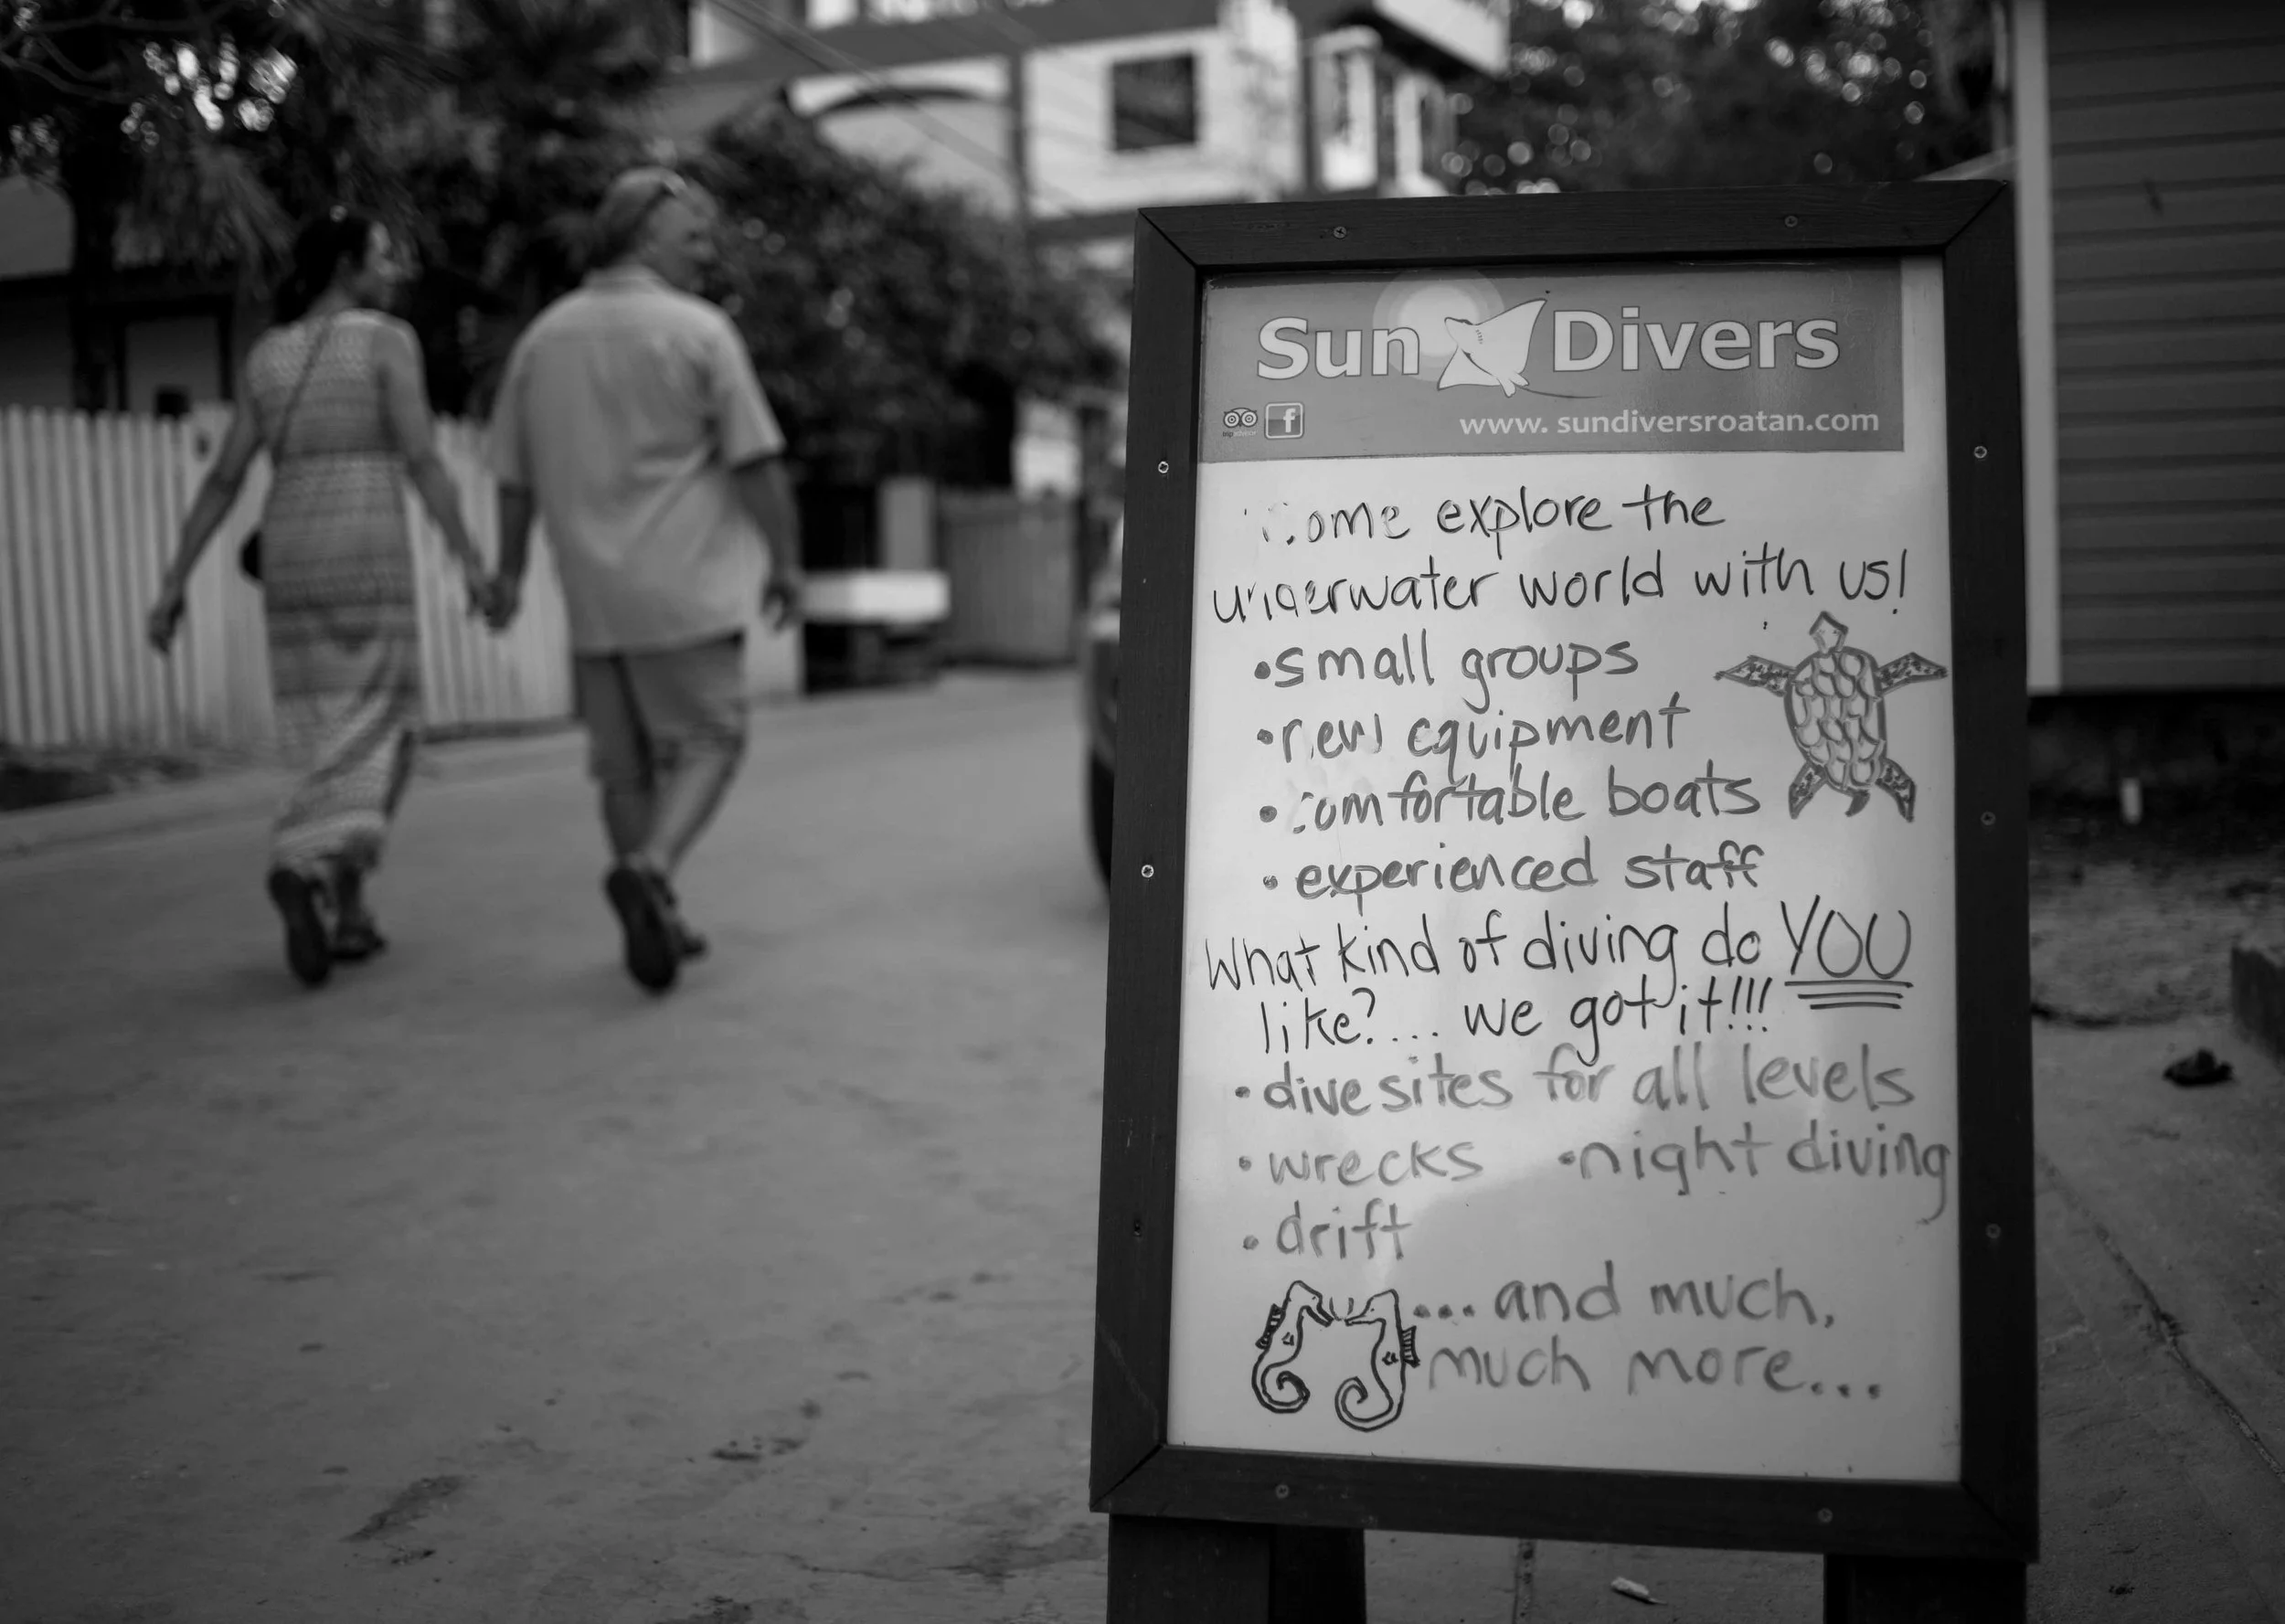 Sun Divers
f
www. sundiversroatan.com
Come explore the
underwater world with us!
•small groups
•new equipment
•comfortable boats
•experienced staff
What kind of diving do YOU
like?.... we got it!!!
•dive sites for all levels
•wrecks •night diving
•drift
...and much,
much more...